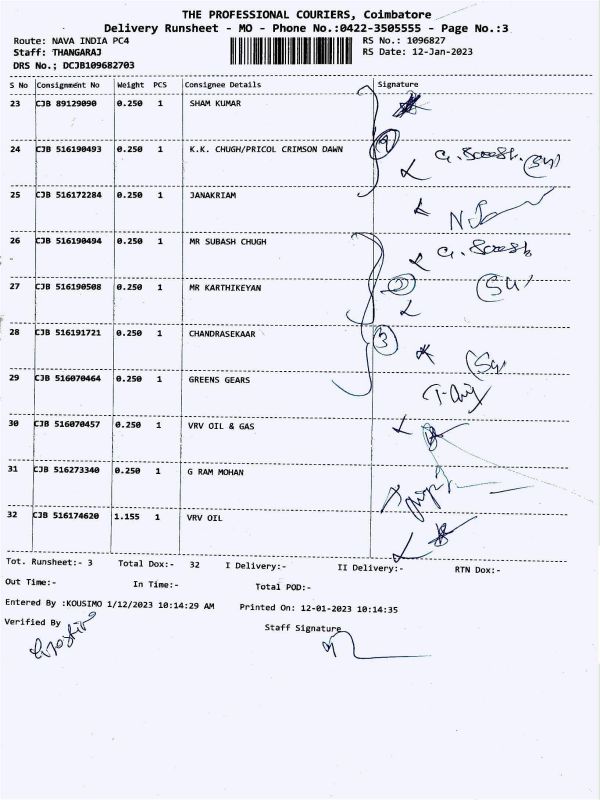 THE PROFESSIONAL COURIERS, Coimbatore
Delivery Runsheet - MO - Phone No.:0422-3505555 - Page No.:3
Route: NAVA INDIA PC4 RS No.: 1096827
Staff: THANGARAJ RS Date: 12-Jan-2023
DRS No.; DCJB109682703
S No Consignment No Weight PCS Consignee Details Signature
23 CJB 89129090 0.250 1 SHAM KUMAR
24 CJB 516190493 0.250 1 K.K. CHUGH/PRICOL CRIMSON DAWN
25 CJB 516172284 0.250 1 JANAKRIAM
26 CJB 516190494 0.250 1 MR SUBASH CHUGH
27 CJB 516190508 0.250 1 MR KARTHIKEYAN 2
28 CJB 516191721 0.250 1 CHANDRASEKAAR 3
29 CJB 516070464 0.250 1 GREENS GEARS
30 CJB 516070457 0.250 1 VRV OIL & GAS
31 CJB 516273340 0.250 1 G RAM MOHAN
32 CJB 516174620 1.155 1 VRV OIL
Tot. Runsheet:- 3 Total Dox:- 32 I Delivery:- II Delivery:- RTN Dox:-
Out Time:- In Time:- Total POD:-
Entered By :KOUSIMO 1/12/2023 10:14:29 AM Printed On: 12-01-2023 10:14:35
Verified By Staff Signature